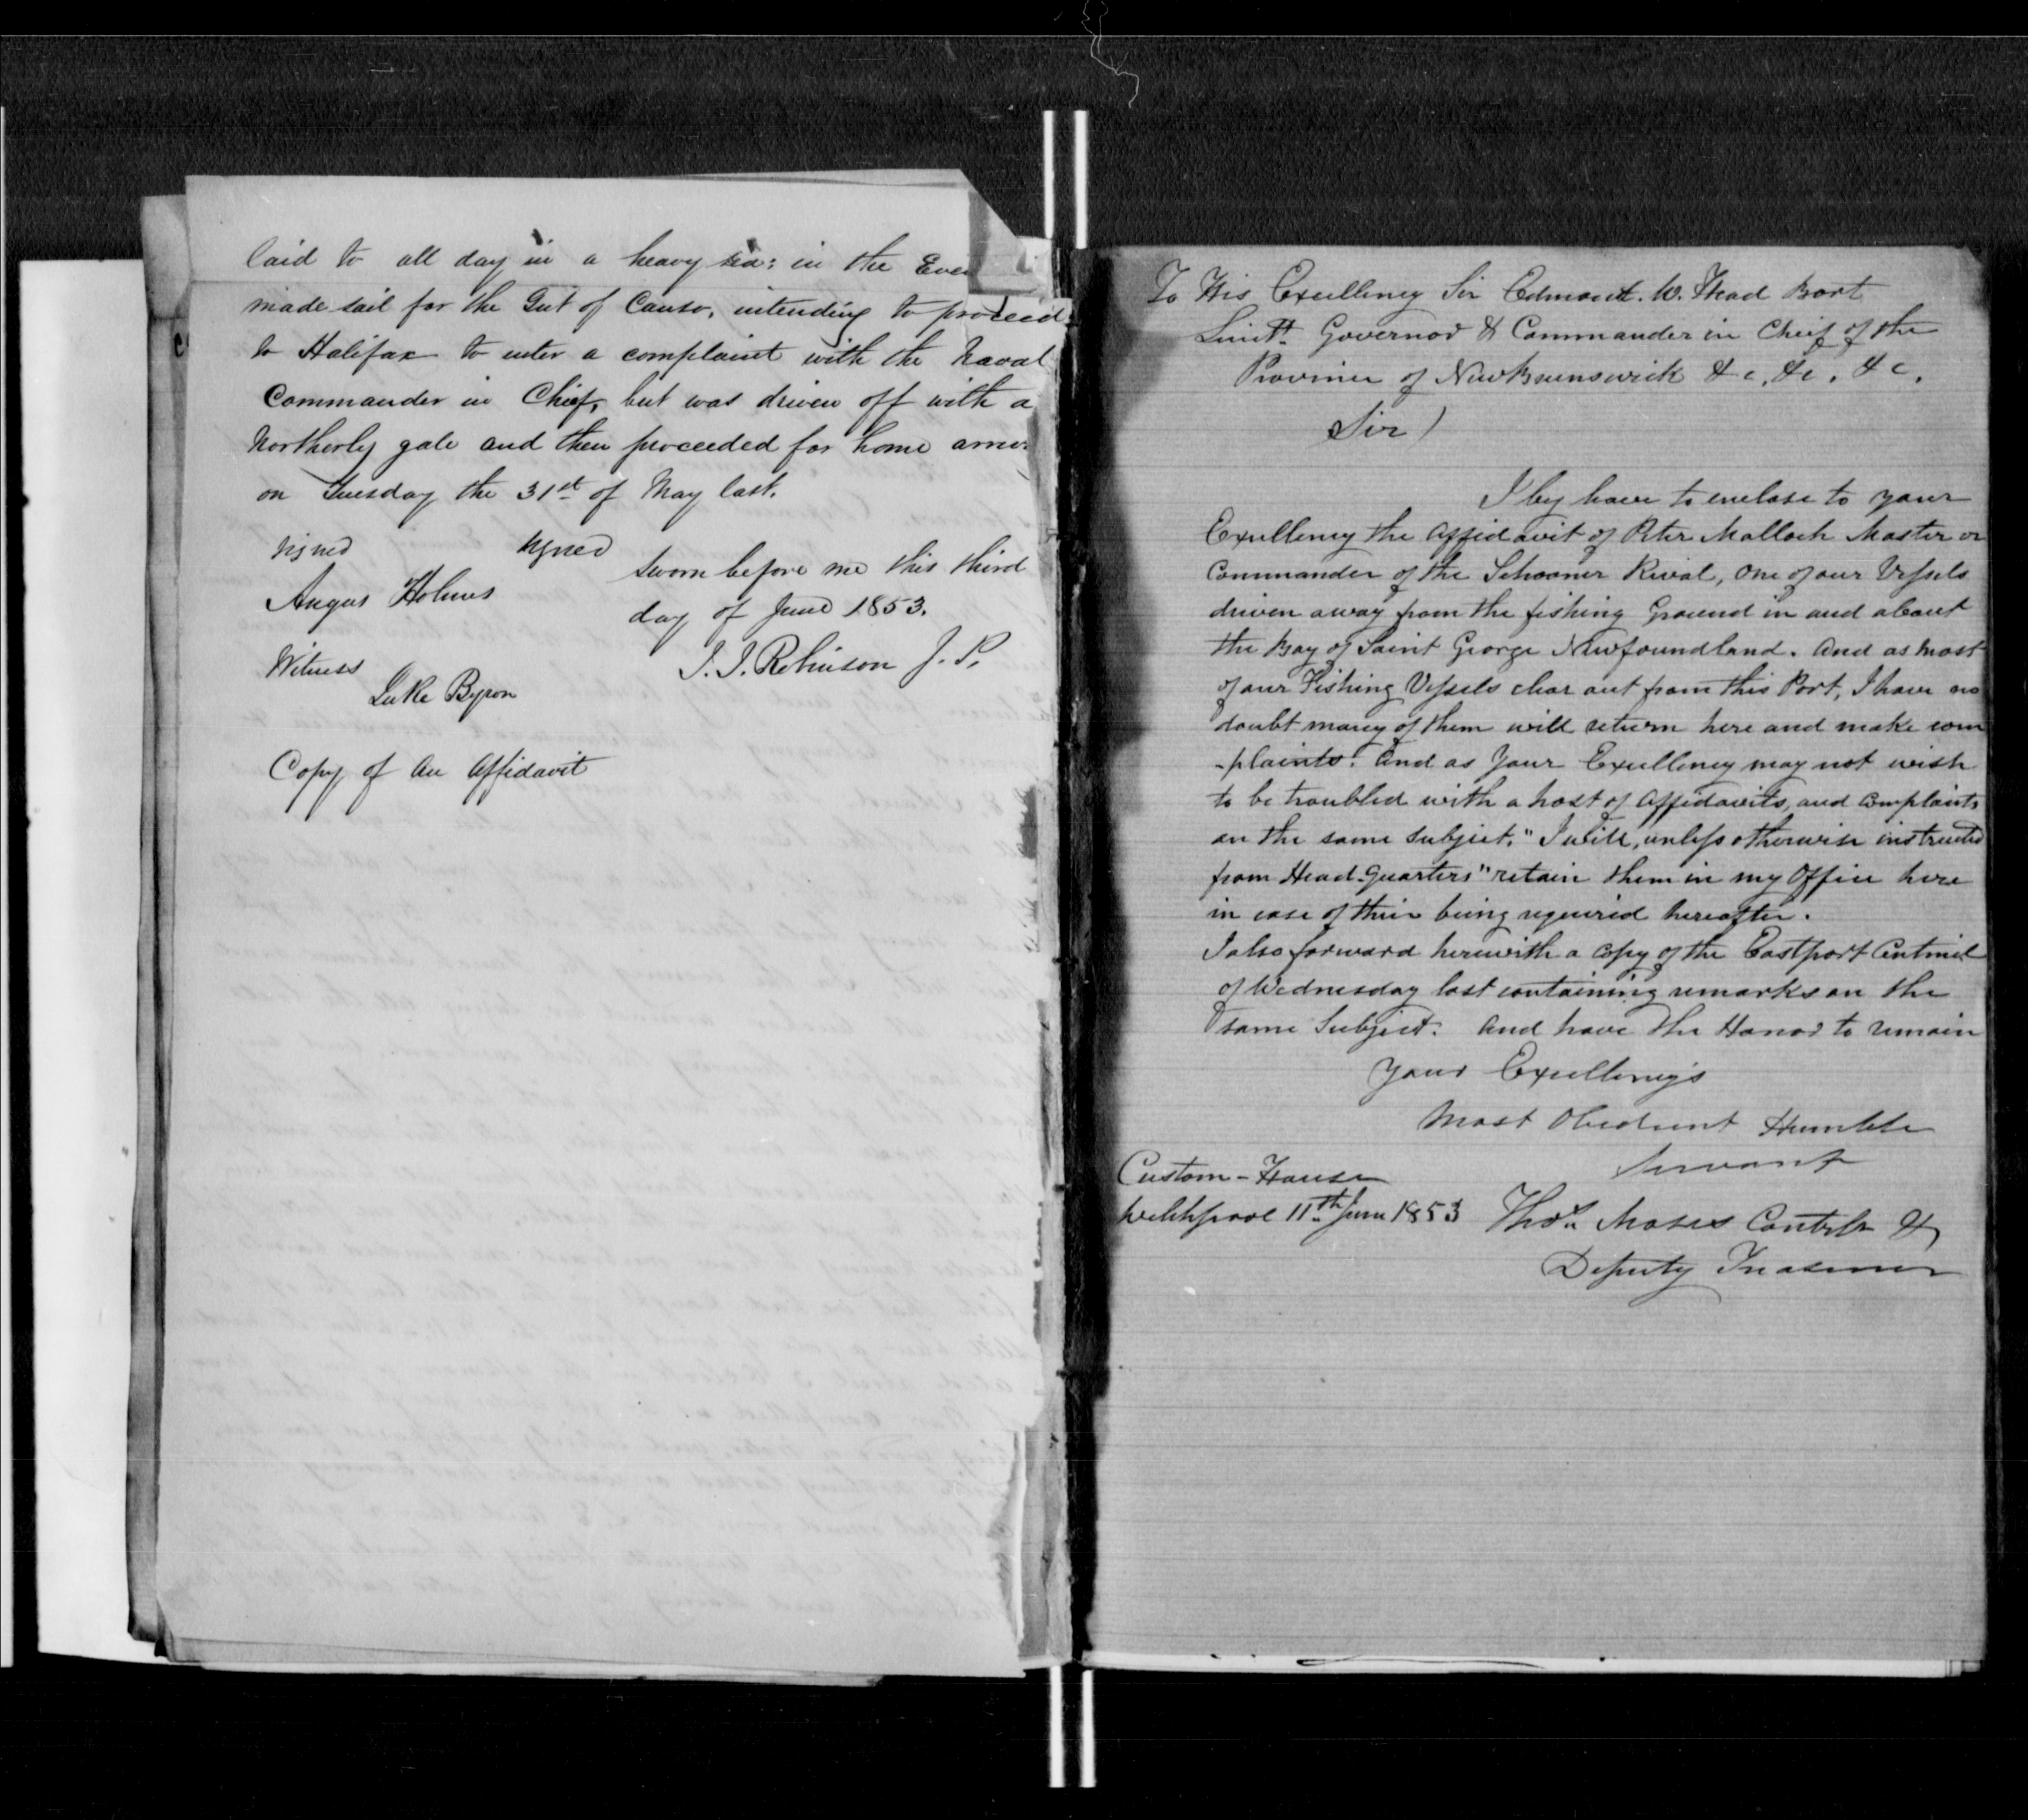 laid to all day in a heavy sea: in the Even
made sail for the Gut of Canso, intending to proceed
to Halifax to enter a complaint with the Naval
Commander in Chief, but was driven off with a
Northerly gale and then proceeded for home arriv
on Tuesday the 31st of May last.
signed signed
Angus Holmes
Witness
Luke Byron
Sworn before me this third
day of June 1853.
J. J. Robinson J. P.
Copy of an Affidavit
To His Excellency Sir Edmond. W. Head Bart
Lieutt. Governor & Commander in Chief of the
Province of NewBrunswick &c, &c, &c,
Sir)
I beg leave to enclose to your
Excellency the Affidavit of Peter Malloch Master or
Commander of the Schooner Rival, One of our Vessels
driven away from the fishing Ground in and about
the Bay of Saint George Newfoundland. And as most
of our Fishing Vessels clear out from this Port, I have no
doubt many of them will return here and make com
-plaints. And as Your Excellency may not wish
to be troubled with a host of Affidavits, and Complaints
on the same Subject. "I will, unless otherwise instructed
from Head-Quarters" retain them in my Office here
in case of their being required hereafter.
I also forward herewith a copy of the Eastport Centinel
of Wednesday last containing remarks on the
same Subject. And have the Honor to remain
Your Excellency's
Most Obedient Humble
Servant
Custom-House
Welchpool 11th June 1853
Thos. Moses Contrlr &
Deputy Treasurer